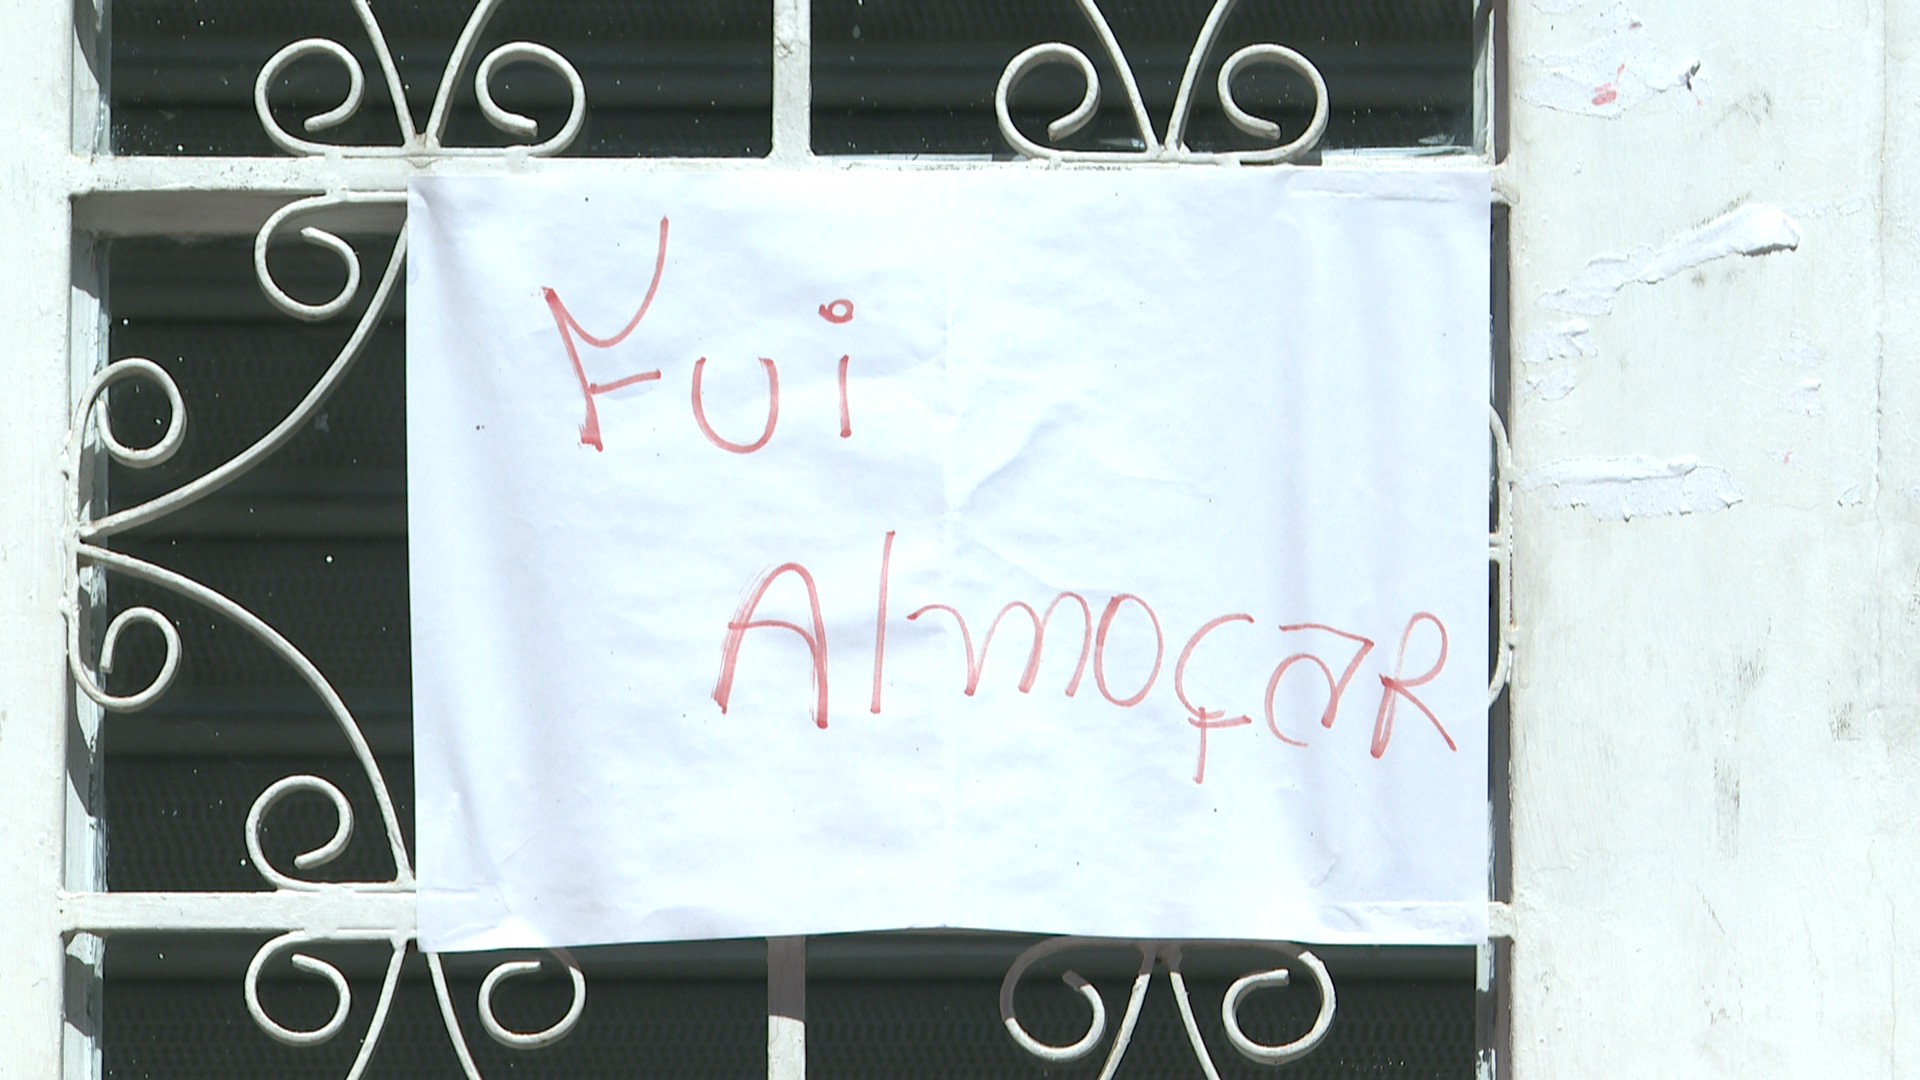 Fui
AlmoçaR